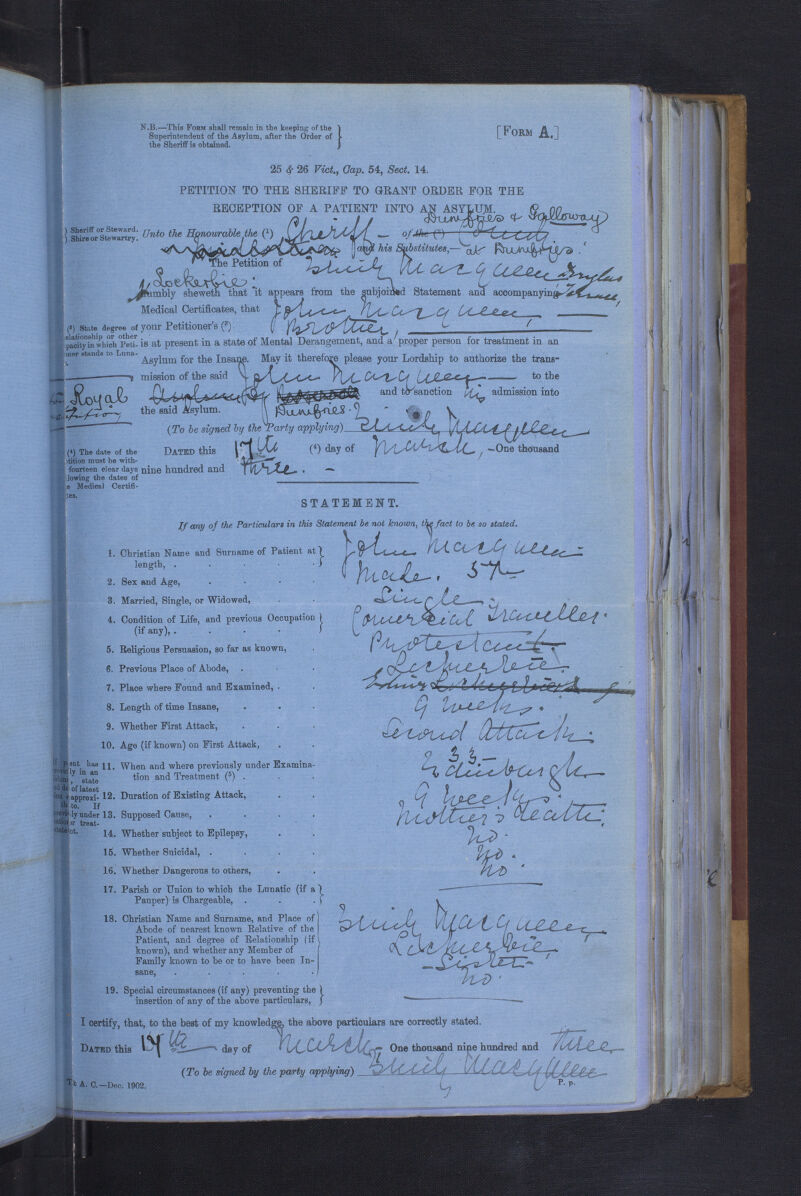 N.B.—This Form shall remain in the keeping of the
Superintendent of the Asylum, after the Order of
the Sheriff is obtained.
[Form A.]
25 & 26 Vict., Cap. 54, Sect. 14.
PETITION TO THE SHERIFF TO GRANT ORDER FOR THE
RECEPTION OF A PATIENT INTO AN ASYLUM.
Dumfries & Galloway
Sheriff or Steward.
Shire or Stewartry.
Unto the Honourable the (¹) Sheriff — of the (²)
and his Substitutes,— at Dumfries.
The Petition of Emily Macqueen Douglas Terrace,
Lockerbie.
Humbly sheweth that it appears from the subjoined Statement and accompanying
Medical Certificates, that John Macqueen, —
(³) State degree of
relationship or other
capacity in which Peti-
tioner stands to Luna-
your Petitioner's (³) Brother,
is at present in a state of Mental Derangement, and a proper person for treatment in an
Asylum for the Insane. May it therefore please your Lordship to authorize the trans-
mission of the said John Macqueen — to the
Royal
Asylum and to sanction his admission into
the said Asylum. Dumfries.
(To be signed by the Party applying) Emily Macqueen
(⁴) The date of the
Petition must be with-
fourteen clear days
following the dates of
e Medical Certifi-
tes.
Dated this 17th (⁴) day of March, —One thousand
nine hundred and three. —
STATEMENT.
If any of the Particulars in this Statement be not known, the fact to be so stated.
1. Christian Name and Surname of Patient at
length, . John Macqueen
2. Sex and Age, Male. 57
3. Married, Single, or Widowed, Single.
4. Condition of Life, and previous Occupation
(if any), . Comercial Traveller.
5. Religious Persuasion, so far as known, Protestant.
6. Previous Place of Abode, . Lockerbie.
7. Place where Found and Examined, . Lockerbie
8. Length of time Insane, 9 weeks.
9. Whether First Attack, Second Attack.
10. Age (if known) on First Attack, 33
11. When and where previously under Examina-
tion and Treatment (⁵) . Edinburgh
12. Duration of Existing Attack, 9 Weeks.
13. Supposed Cause, Mother's death.
14. Whether subject to Epilepsy, no.
15. Whether Suicidal, . No.
16. Whether Dangerous to others, no
17. Parish or Union to which the Lunatic (if a
Pauper) is Chargeable, .
18. Christian Name and Surname, and Place of
Abode of nearest known Relative of the
Patient, and degree of Relationship (if
known), and whether any Member of
Family known to be or to have been In-
sane,
Emily Macqueen,
Lockerbie,
—Sister—
no.
19. Special circumstances (if any) preventing the
insertion of any of the above particulars,
I certify, that, to the best of my knowledge, the above particulars are correctly stated.
Dated this 17th day of March, One thousand nine hundred and three
(To be signed by the party applying) Emily Macqueen
T. & A. C.—Dec. 1902.
P. p.